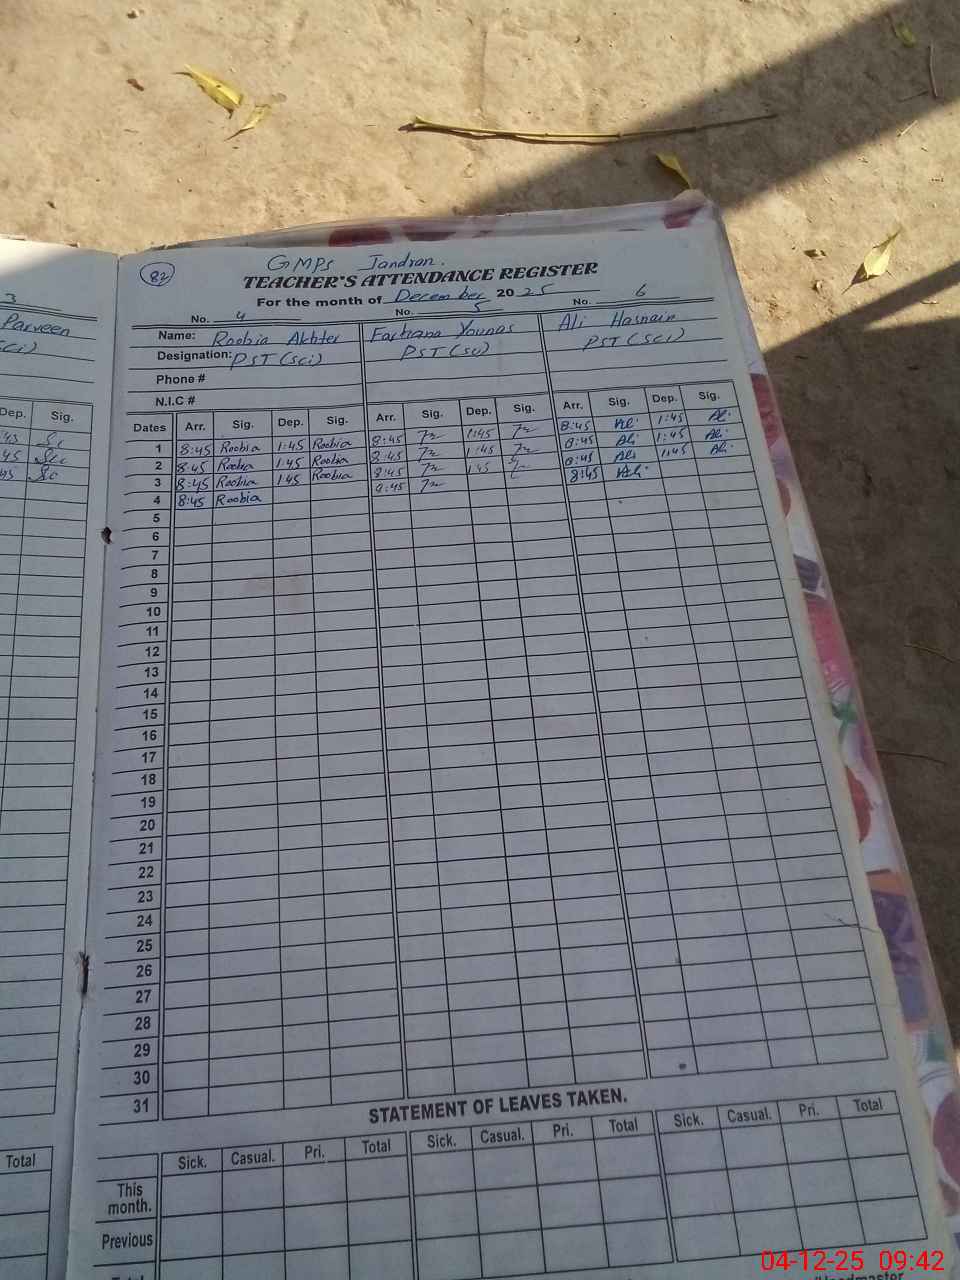 82
GMPS Jandran.
TEACHER'S ATTENDANCE REGISTER
For the month of December 2025
3
Parveen
sci)
Dep. Sig.
:45 Sc
45 Sc
45 Sc
Total
No. 4 No. 5 No. 6
Name: Roobia Akhter Farhana Younas Ali Hasnain
Designation: PST (sci) PST (sci) PST (sci)
Phone #
N.I.C #
Dates Arr. Sig. Dep. Sig. Arr. Sig. Dep. Sig. Arr. Sig. Dep. Sig.
1 8:45 Roobia 1:45 Roobia 8:45 1:45 8:45 Ali 1:45 Ali
2 8:45 Roobia 1:45 Roobia 8:45 1:45 8:45 Ali 1:45 Ali
3 8:45 Roobia 1:45 Roobia 8:45 1:45 8:45 Ali 1:45 Ali
4 8:45 Roobia 8:45 8:45 Ali
5
6
7
8
9
10
11
12
13
14
15
16
17
18
19
20
21
22
23
24
25
26
27
28
29
30
31
STATEMENT OF LEAVES TAKEN.
Sick. Casual. Pri. Total Sick. Casual. Pri. Total Sick. Casual. Pri. Total
This month.
Previous
04-12-25 09:42